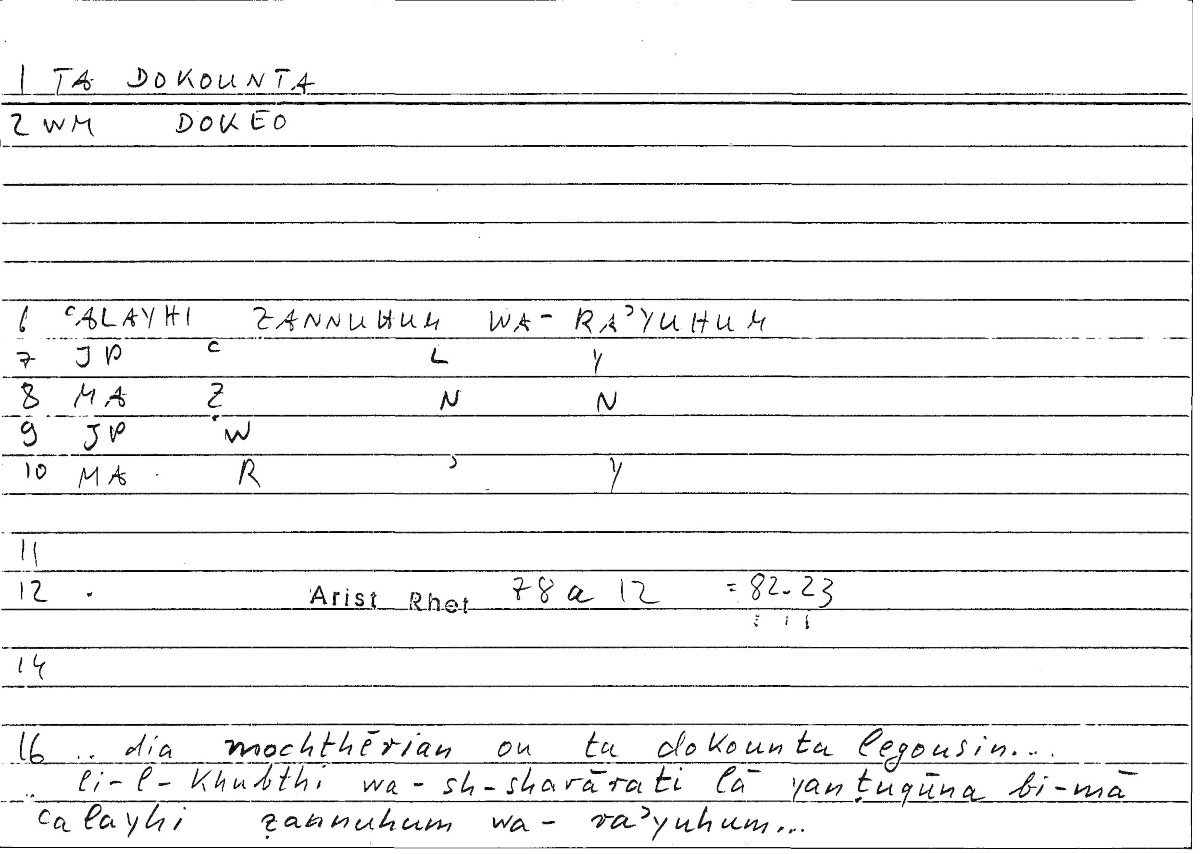 1 TA DOKOUNTA
2 WM DOKEO
6 ʿALAYHI ẒANNUHUM WA- RAʾYUHUM
7 JP ʿ L Y
8 MA Ẓ N N
9 JP W
10 MA R ʾ Y
11
12 Arist Rhet 78a 12 = 82.23
14
16 .. dia mochthērian ou ta dokounta legousin...
li-l-khubthi wa-sh-sharārati lā yanṭuqūna bi-mā
ʿalayhi ẓannuhum wa- raʾyuhum...